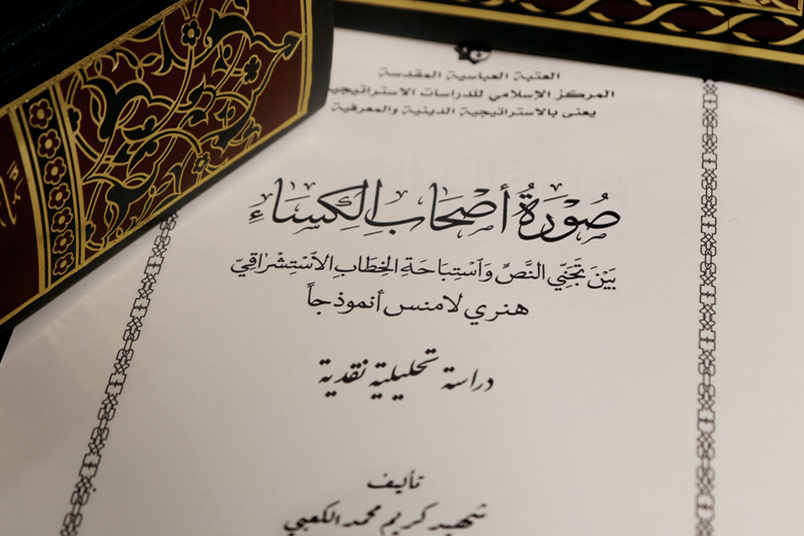 العتبة العباسية المقدسة
المركز الإسلامي للدراسات الاستراتيجية
يعنى بالاستراتيجية الدينية والمعرفية
صُوْرَةُ أَصْحَابِ الْكِسَاءِ
بَيْنَ تَجَنِّي النَّصِّ وَاَسْتِبَاحَةِ الخِطَابِ الاَسْتِشْرَاقِيّ
هنري لامنس أنموذجاً
دراسة تحليلية نقدية
تأليف
شهيد كريم محمد الكعبي